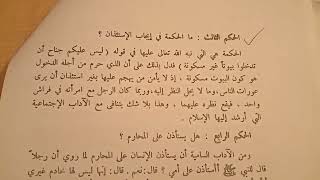 الحكم الثالث : ما الحكمة في إيجاب الإستئذان ؟
الحكمة هي التي نبه الله تعالى عليها في قوله ( ليس عليكم جناح أن
تدخلوا بيوتاً غير مسكونة ) فدل بذلك على أن الذي حرم من أجله الدخول
هو كون البيوت مسكونة ، إذ لا يأمن من يهجم عليها بغير استئذان أن يرى
عورات الناس، وما لا يحل النظر إليه، وربما كان الرجل مع امرأته في فراش
واحد ، فيقع نظره عليهما ، وهذا بلا شك يتنافى مع الآداب الإجتماعية
التي أرشد إليها الإسلام .
الحكم الرابع : هل يستأذن على المحارم ؟
ومن الآداب السامية أن يستأذن الإنسان على المحارم لما روي أن رجلاً
قال للنبي ﷺ أأستأذن على أمي ؟ قال: نعم . قال: إنها ليس لها خادم غيري